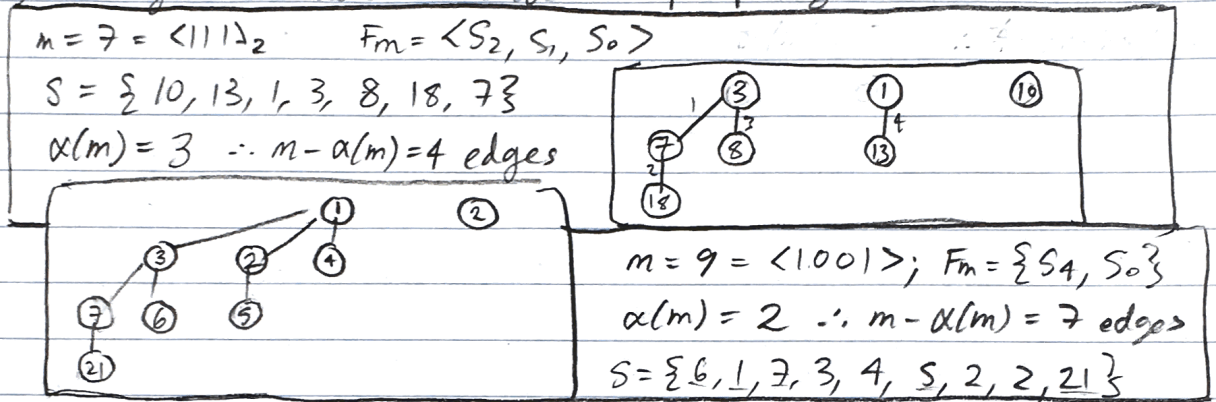 m = 7 = <111>₂    Fm = <S₂, S₁, S₀>
S = { 10, 13, 1, 3, 8, 18, 7}
α(m) = 3 ∴ m - α(m) = 4 edges
3 1 10
1 3 4
7 8 13
2
18
1 2
3 2 4
7 6 5
21
m = 9 = <1001>; Fm = {S₄, S₀}
α(m) = 2 ∴ m - α(m) = 7 edges
S = {6, 1, 7, 3, 4, 5, 2, 2, 21}